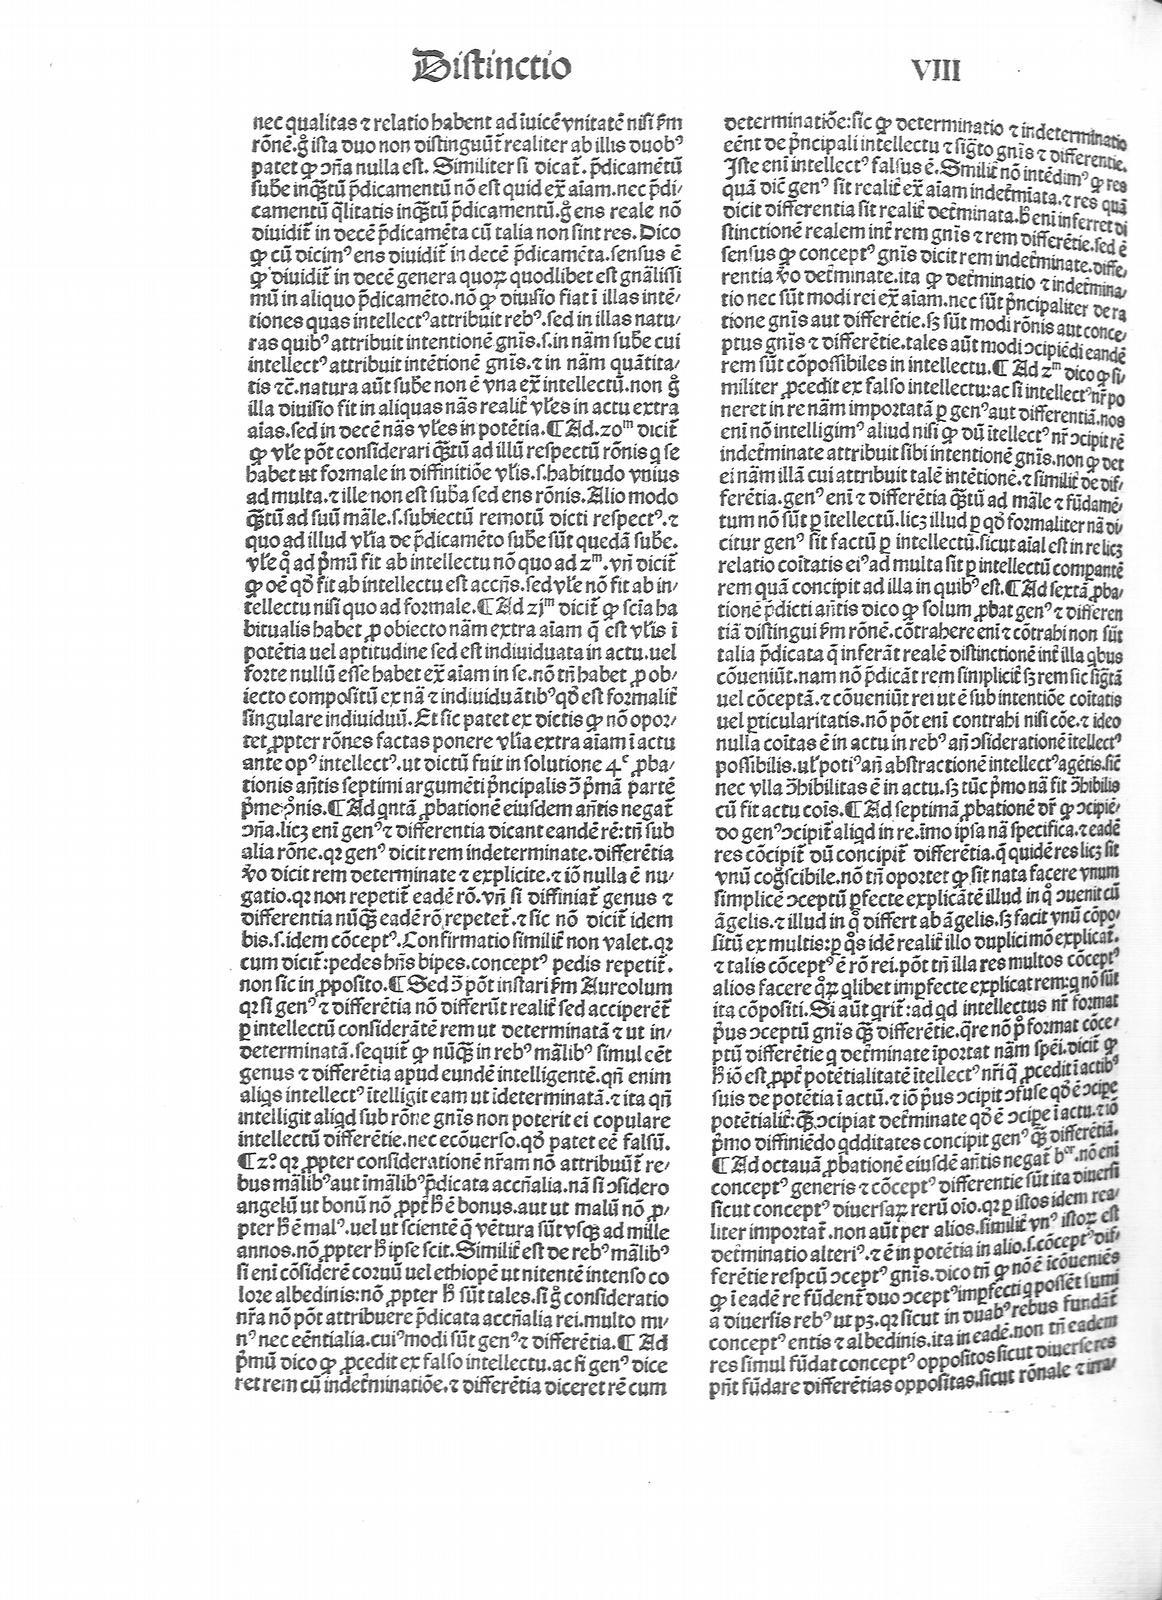 Distinctio
VIII
nec qualitas ⁊ relatio habent ad īuicē vnitatē nisi ẜm
rōnē.g̊ ista duo non distinguūt᷑ realiter ab illis duobꝰ
patet ꝙ ↄña nulla est. Similiter si dicat᷑. p̄dicamētū
sub̄e inqƷ̄tū p̄dicamentū nō est quid ex̄ aīam.nec p̄di⸗
camentū q̄litatis inqƷ̄tū p̄dicamentū.g̊ ens reale nō
diuidit᷑ in decē p̄dicamēta cū talia non sint res. Dico
ꝙ cū dicimꝰ ens diuidit᷑ in decē p̄dicamēta.sensus ē
ꝙ diuidit᷑ in decē genera quoꝝ quodlibet est gnālissi
mū in aliquo p̄dicamēto.nō ꝙ diuisio fiat ī illas intē⸗
tiones quas intellectꝰ attribuit rebꝰ.sed in illas natu⸗
ras quibꝰ attribuit intentionē gnīs.s.in nām sub̄e cui
intellectꝰ attribuit intētionē gnīs.⁊ in nām quātita⸗
tis ⁊c̄.natura aūt sub̄e non ē vna ex̄ intellectū.non g̊
illa diuisio fit in aliquas nās realit᷑ vl̄es in actu extra
aīas.sed in decē nās vl̄es in potētia.¶ Ad.20ᵐ dicit᷑
ꝙ vl̄e pōt considerari qƷ̄tū ad illū respectū rōnis q̄ se
habet ut formale in diffinitiōe vl̄is.s.habitudo vnius
ad multa.⁊ ille non est sub̄a sed ens rōnis. Alio modo
qƷ̄tū ad suū māle.s.subiectū remotū dicti respectꝰ.⁊
quo ad illud vl̄ia de p̄dicamēto sub̄e sūt quedā sub̄e.
vl̄e g̊ ad p̄mū fit ab intellectu nō quo ad 2ᵐ.vn̄ dicit᷑
ꝙ oē qd̄ fit ab intellectu est accn̄s.sed vl̄e nō fit ab in⸗
tellectu nisi quo ad formale.¶ Ad 2jᵐ dicit᷑ ꝙ scīa ha
bitualis habet ꝓ obiecto nām extra aīam q̄ est vl̄is ī
potētia uel aptitudine sed est indiuiduata in actu.uel
forte nullū esse habet ex̄ aīam in se.nō tn̄ habet ꝓ ob⸗
iecto compositū ex nā ⁊ indiuiduātibꝰ qd̄ est formalit᷑
singulare indiuiduū. Et sic patet ex dictis ꝙ nō opor⸗
tet ꝓpter rōnes factas ponere vl̄ia extra aīam ī actu
ante opꝰ intellectꝰ.ut dictū fuit in solutione 4ᵉ ꝓba⸗
tionis an̄tis septimi argumēti p̄ncipalis ↄ̄ p̄mā partē
¶ Ad qntā ꝓbationē eiusdem an̄tis negat᷑
ↄña.licꝫ eni genꝰ ⁊ differentia dicant eandē rē:tn̄ sub
alia rōne.qꝛ genꝰ dicit rem indeterminate.differētia
v̊o dicit rem determinate ⁊ explicite.⁊ iō nulla ē nu⸗
gatio.qꝛ non repetit᷑ eadē rō.vn̄ si diffiniat᷑ genus ⁊
differentia nūqƷ̄ eadē rō repetet᷑.⁊ sic nō dicit᷑ idem
bis.s.idem cōceptꝰ.Confirmatio similit᷑ non valet.qꝛ
cum dicit᷑:pedes hn̄s bipes.conceptꝰ pedis repetit᷑.
non sic in ꝓposito.¶ Sed ↄ̄ pōt instari ẜm Aureolum
qꝛ si genꝰ ⁊ differētia nō differūt realit᷑ sed acciperēt᷑
ꝑ intellectū considerātē rem ut determinatā ⁊ ut in⸗
determinatā.sequit᷑ ꝙ nūqƷ̄ in rebꝰ mālibꝰ simul eēt
genus ⁊ differētia apud eundē intelligentē.qn̄ enim
aliqs intellectꝰ ītelligit eam ut īdeterminatā.⁊ ita qn̄
intelligit aliqd sub rōne gnīs non poterit ei copulare
intellectū differētie.nec ecōuerso.qd̄ patet eē falsū.
¶ 2ꝰ qꝛ ꝓpter considerationē nr̄am nō attribuūt᷑ re⸗
bus mālibꝰ aut īmālibꝰ p̄dicata accn̄alia.nā si ↄsidero
angelū ut bonū nō ꝓpt᷑ h̄ ē bonus.aut ut malū nō ꝓ⸗
pter h̄ ē malꝰ.uel ut scientē q̄ vētura sūt vsqꝫ ad mille
annos.nō ꝓpter h̄ ipse scit.Similit᷑ est de rebꝰ mālibꝰ
si eni cōsiderē coruū uel ethiopē ut nitentē intenso co
lore albedinis:nō ꝓpter h̄ sūt tales.si g̊ consideratio
nr̄a nō pōt attribuere p̄dicata accn̄alia rei.multo mi⸗
nꝰ nec eēntialia.cuiꝰmodi sūt genꝰ ⁊ differētia.¶ Ad
p̄mū dico ꝙ ꝓcedit ex falso intellectu.ac si genꝰ dice
ret rem cū indet᷑minatiōe.⁊ differētia diceret rē cum
determinatiōe:sic ꝙ determinatio ⁊ indeterminatio
eēnt de p̄ncipali intellectu ⁊ sig̊to gnīs ⁊ differentie.
Iste eni intellectꝰ falsus ē. Similit᷑ nō intēdimꝰ ꝙ res
quā dic̄ genꝰ sit realit᷑ ex̄ aīam indet᷑mīata.⁊ res quā
dicit differentia sit realit᷑ det᷑minata.h̄ eni inferret di
stinctionē realem int᷑ rem gnīs ⁊ rem differētie.sed ē
sensus ꝙ conceptꝰ gnīs dicit rem indet᷑minate.diffe⸗
rentia v̊o det᷑minate.ita ꝙ det᷑minatio ⁊ indet᷑mina⸗
tio nec sūt modi rei ex̄ aīam.nec sūt p̄ncipaliter de ra
tione gnīs aut differētie.sꝫ sūt modi rōnis aut conce⸗
ptus gnīs ⁊ differētie.tales aūt modi ↄcipiēdi eandē
rem sūt cōpossibiles in intellectu.¶ Ad 2ᵐ dico ꝙ si⸗
militer ꝓcedit ex falso intellectu:ac si intellectꝰ nr̄ po
neret in re nām importatā ꝑ genꝰ aut differentiā.nos
eni nō intelligimꝰ aliud nisi ꝙ dū ītellectꝰ nr̄ ↄcipit rē
indet᷑minate attribuit sibi intentionē gnīs.non ꝙ det
ei nām illā cui attribuit talē intētionē.⁊ similit᷑ de dif⸗
ferētia.genꝰ eni ⁊ differētia qƷ̄tū ad māle ⁊ fūdamē⸗
tum nō sūt ꝑ ītellectū.licꝫ illud ꝑ qd̄ formaliter nā di⸗
citur genꝰ sit factū ꝑ intellectū.sicut aīal est in re licꝫ
relatio coītatis eiꝰ ad multa sit ꝑ intellectū compantē
rem quā concipit ad illa in quibꝰ est.¶ Ad sextā ꝓba⸗
tionē p̄dicti an̄tis dico ꝙ solum ꝓbat genꝰ ⁊ differen
tiā distingui ẜm rōnē.cōtrahere eni ⁊ cōtrahi non sūt
talia p̄dicata q̄ inferāt realē distinctionē int᷑ illa qbus
cōueniūt.nam nō p̄dicāt rem simplicit᷑ sꝫ rem sic sig̊tā
uel cōceptā.⁊ cōueniūt rei ut ē sub intentiōe coītatis
uel ꝑticularitatis.nō pōt eni contrahi nisi cōe.⁊ ideo
nulla coītas ē in actu in rebꝰ an̄ ↄsiderationē ītellectꝰ
possibilis.ul̄ potiꝰ an̄ abstractionē intellectꝰ agētis.sic̄
nec vlla ↄ̄hibilitas ē in actu.sꝫ tūc p̄mo nā fit ↄ̄hibilis
cū fit actu coīs.¶ Ad septimā ꝓbationē dr̄ ꝙ ↄcipiē⸗
do genꝰ ↄcipit᷑ aliqd in re.īmo ipsa nā specifica.⁊ eadē
res cōcipit᷑ dū concipit᷑ differētia.q̄ quidē res licꝫ sit
vnū cog̊scibile.nō tn̄ oportet ꝙ sit nata facere vnum
simplicē ↄceptū ꝑfecte explicātē illud in q̊ ↄuenit cū
āgelis.⁊ illud in q̊ differt ab āgelis.sꝫ facit vnū cōpo⸗
sitū ex multis:ꝑ q̊s idē realit᷑ illo duplici mō explicat᷑.
⁊ talis cōceptꝰ ē rō rei.pōt tn̄ illa res multos cōceptꝰ
alios facere quoꝝ qlibet impfecte explicat rem:q nō sūt
ita cōpositi. Si aūt qrit᷑:ad qd intellectus nr̄ format
p̄us ↄceptū gnīs qƷ̄ differētie.qre nō p̊ format cōce⸗
ptū differētie q det᷑minate īportat nām spēi.dicit᷑ ꝙ
h̄ iō est ꝓpt᷑ potētialitatē ītellectꝰ nr̄i q̄ ꝓcedit ī actibꝰ
suis de potētia ī actū.⁊ iō p̄us ↄcipit ↄfuse qd̄ ē ↄcipe
potētialit᷑:qƷ̄ ↄcipiat det᷑minate qd̄ ē ↄcipe ī actu.⁊ iō
p̄mo diffiniēdo qdditates concipit genꝰ qƷ̄ differētiā.
¶ Ad octauā ꝓbationē eiusdē an̄tis negat᷑ nō eni
conceptꝰ generis ⁊ cōceptꝰ differentie sūt ita diuersi
sicut conceptꝰ diuersaꝝ rerū oīo.qꝛ ꝑ istos idem rea⸗
liter importat᷑.non aūt per alios.similit᷑ vnꝰ istoꝝ est
det᷑minatio alteriꝰ.⁊ ē in potētia in alio.s.cōceptꝰ dif⸗
ferētie respcū ↄceptꝰ gnīs.dico tn̄ ꝙ nō ē īcōueniēs
ꝙ ī eadē re fūdent᷑ duo ↄceptꝰ impfecti q possēt sumi
a diuersis rebꝰ ut pꝫ.qꝛ sicut in duabꝰ rebus fundat᷑
conceptꝰ entis ⁊ albedinis.ita in eadē.non tn̄ eadem
res simul fūdat conceptꝰ oppositos sicut diuerse res
pn̄t fūdare differētias oppositas.sicut rōnale ⁊ irra⸗